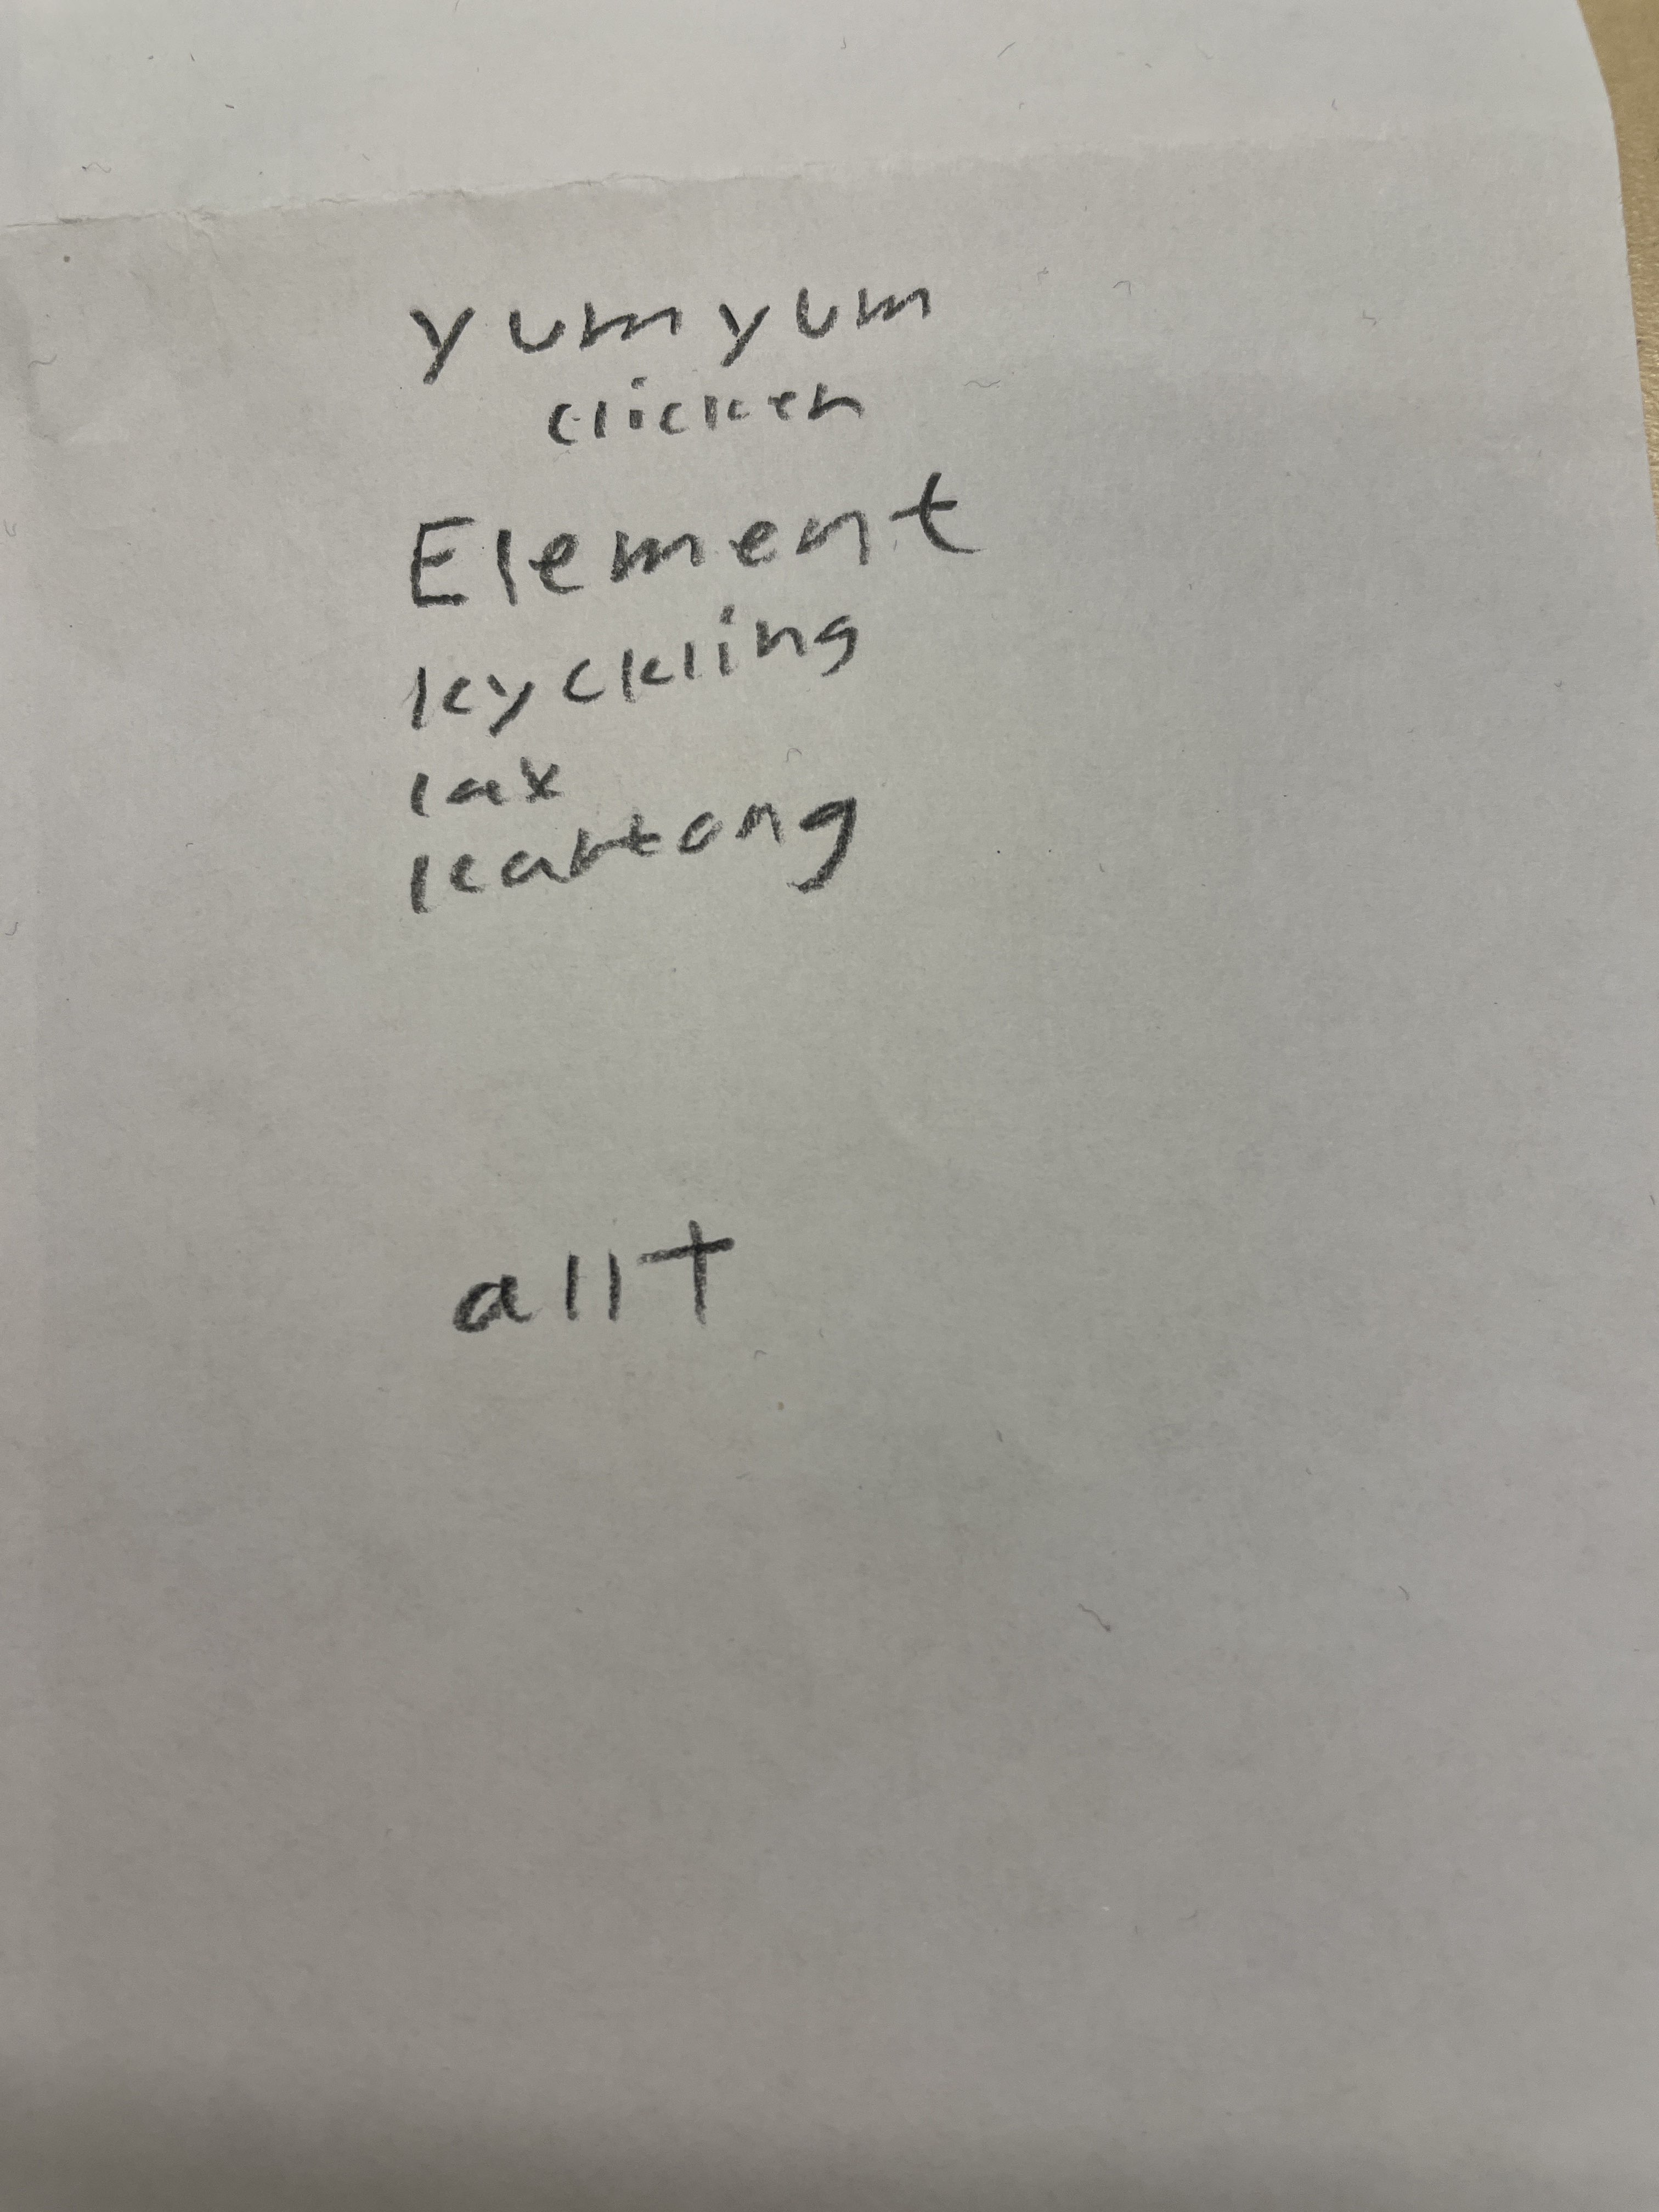 yumyum
clicken
Element
kyckling
lax
kartong
allt